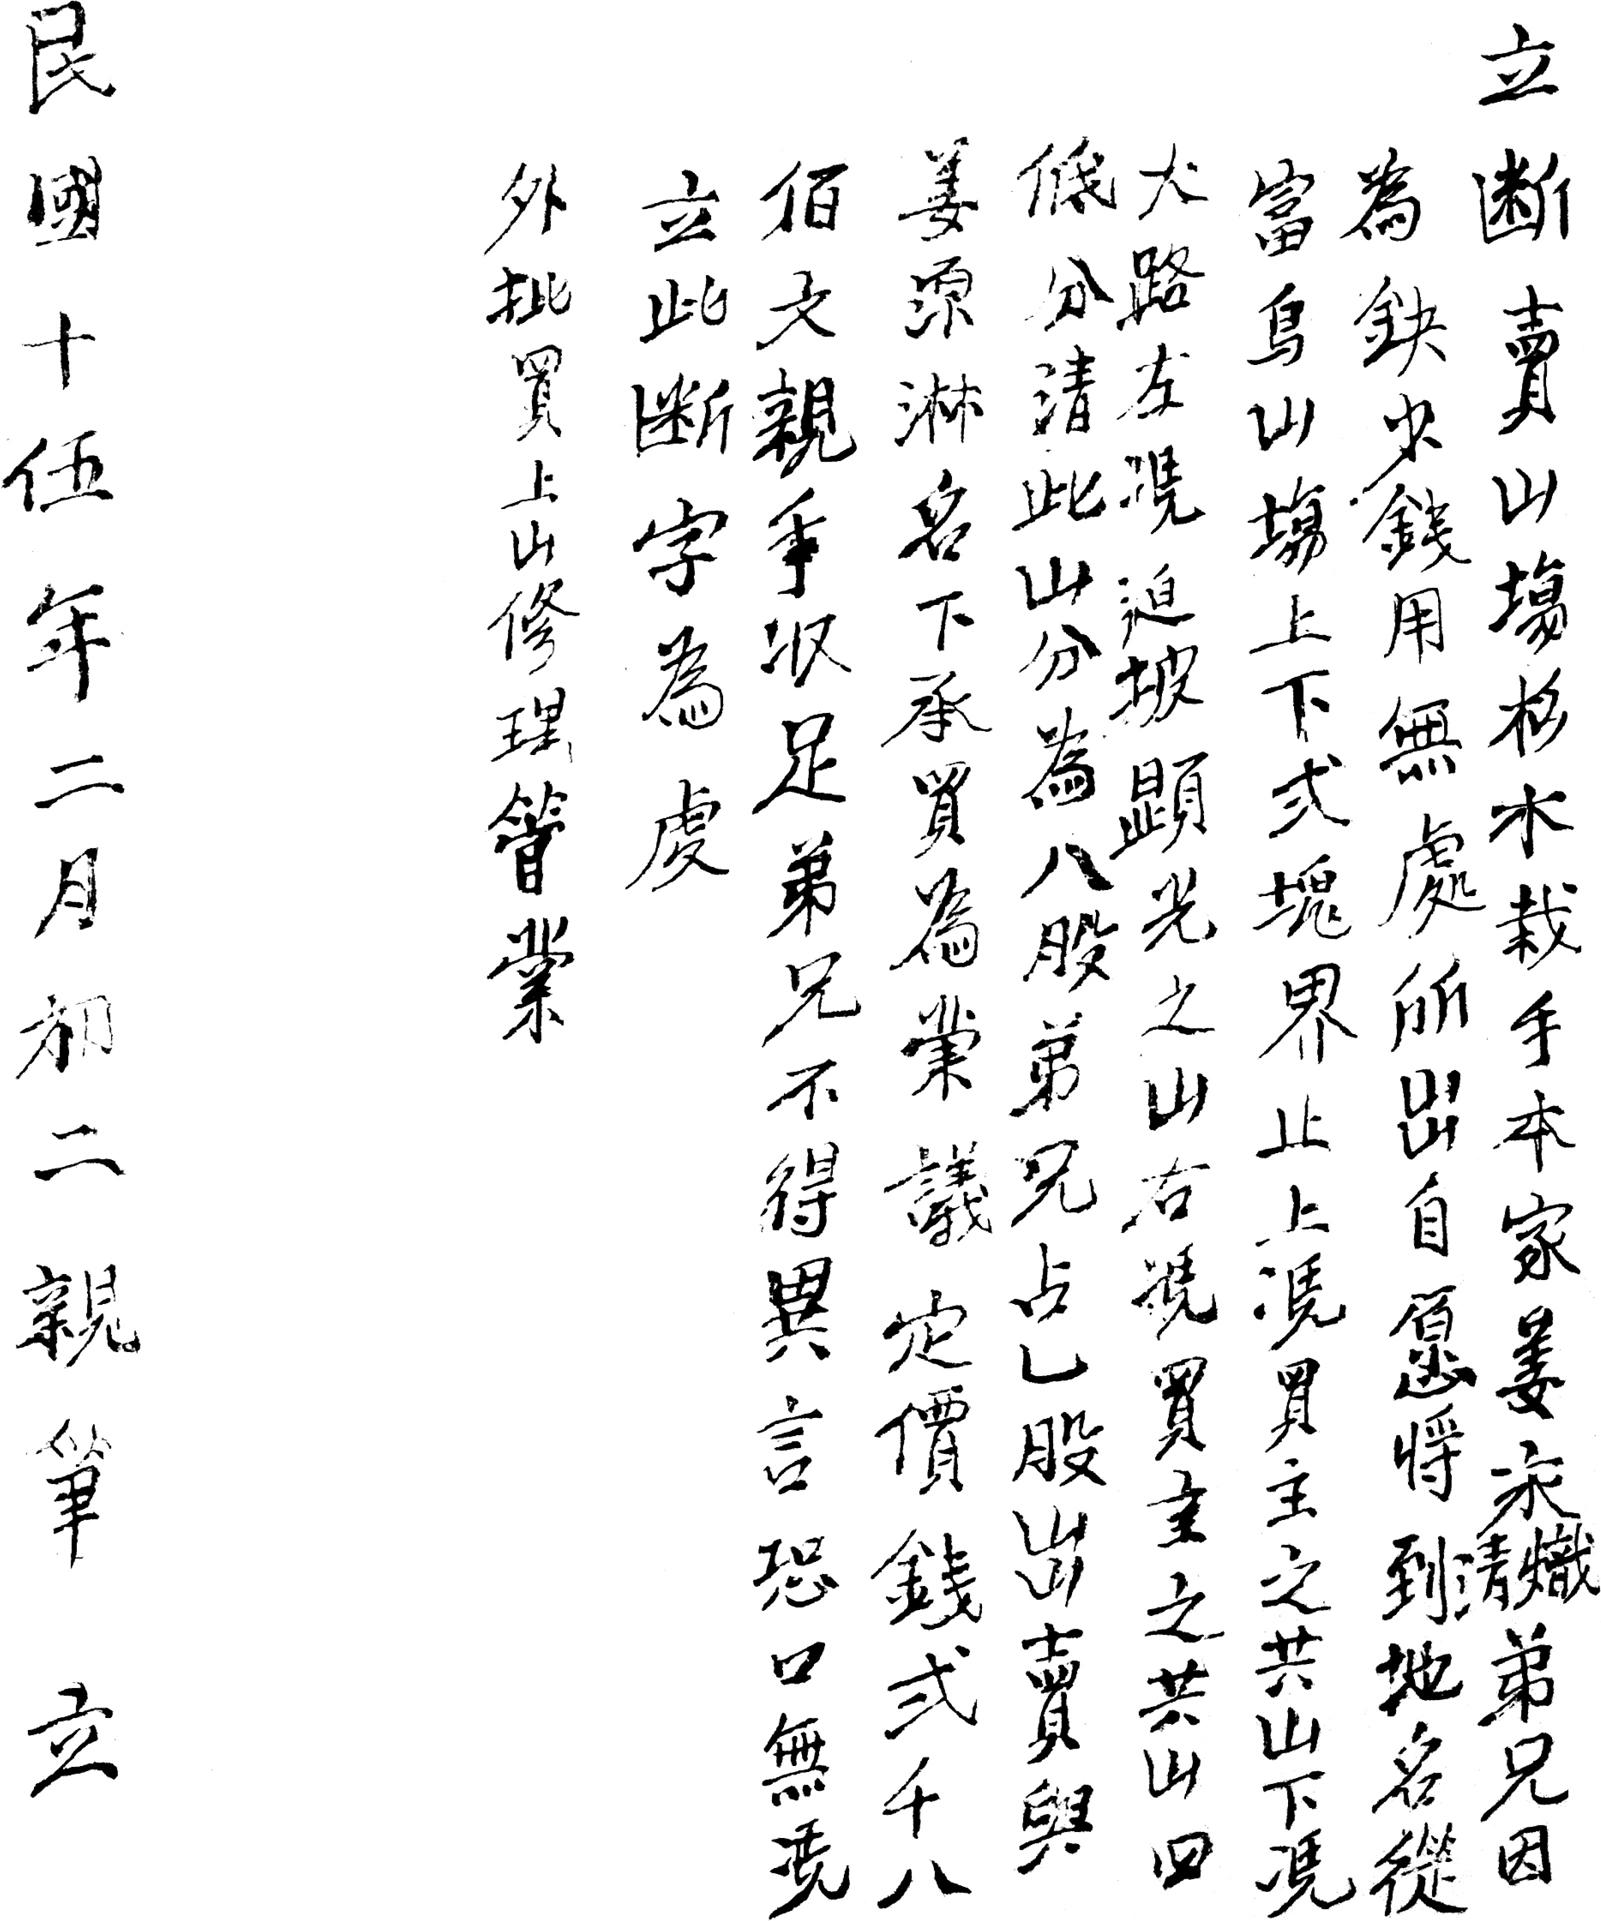 立斷賣山塲杉木栽手本家姜永熾清弟兄因
為缺少錢用無處所出自愿將到地名從
富鳥山塲上下弍塊界止上憑買主之共山下憑
大路左憑迫坡顕光之山右憑買主之共山四
低分清此山分為八股弟兄占乚股出賣與
姜源淋名下承買為業議定價錢弍千八
佰文親手收足弟兄不得異言恐口無憑
立此斷字為處
外批買上山修理管業
民國十伍年二月初二親筆立